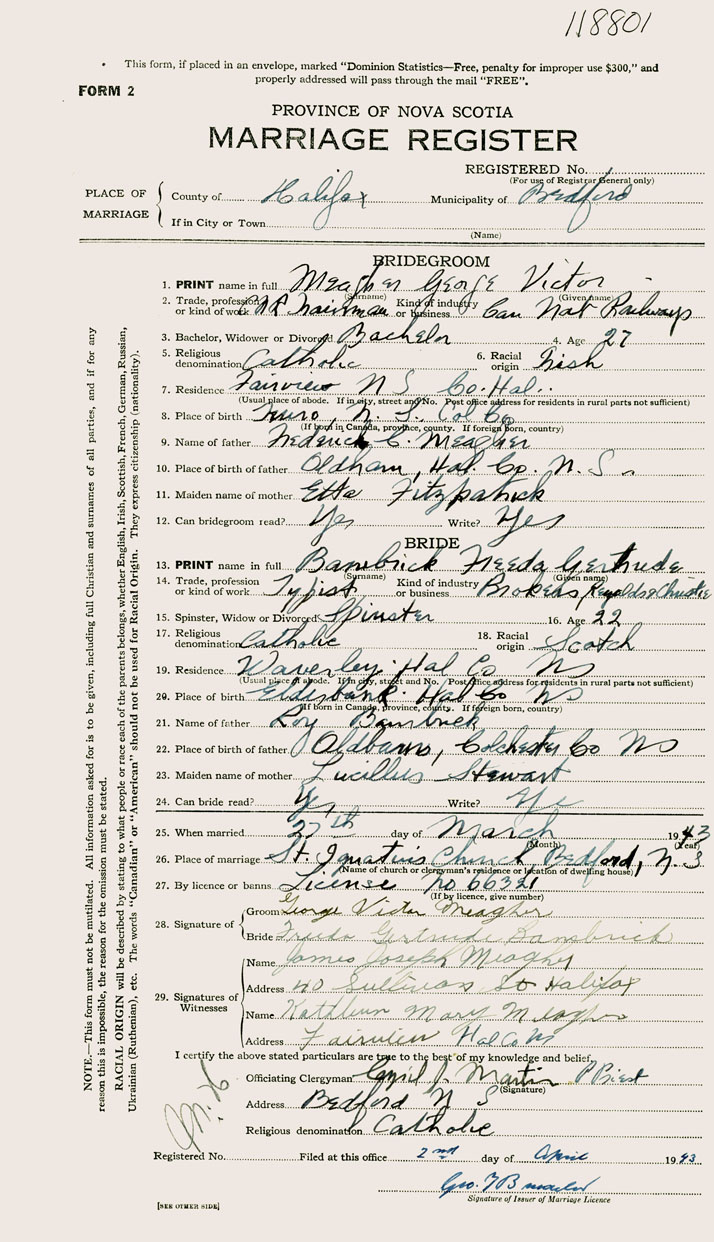 118801
This form, if placed in an envelope, marked "Dominion Statistics—Free, penalty for improper use $300," and
properly addressed will pass through the mail "FREE".
FORM 2
PROVINCE OF NOVA SCOTIA
MARRIAGE REGISTER
REGISTERED No.
(For use of Registrar General only)
PLACE OF MARRIAGE
County of Halifax Municipality of Bedford
If in City or Town
(Name)
BRIDEGROOM
1. PRINT name in full Meagher George Victor
(Surname) (Given name)
2. Trade, profession or kind of work Chairman Kind of industry or business Can Nat Railways
3. Bachelor, Widower or Divorced Bachelor 4. Age 27
5. Religious denomination Catholic 6. Racial origin Irish
7. Residence Fairview N S Co. Hal.
(Usual place of abode. If in city, street and No. Post office address for residents in rural parts not sufficient)
8. Place of birth Truro, N. S. Col Co
(If born in Canada, province, county. If foreign born, country)
9. Name of father Frederick C. Meagher
10. Place of birth of father Oldham, Hal. Co. N. S.
11. Maiden name of mother Etta Fitzpatrick
12. Can bridegroom read? Yes Write? Yes
BRIDE
13. PRINT name in full Bambrick Freeda Gertrude
(Surname) (Given name)
14. Trade, profession or kind of work Typist Kind of industry or business Brokers
15. Spinster, Widow or Divorced Spinster 16. Age 22
17. Religious denomination Catholic 18. Racial origin Scotch
19. Residence Waverley Hal Co NS
(Usual place of abode. If in city, street and No. Post office address for residents in rural parts not sufficient)
20. Place of birth Elderbank Hal Co NS
(If born in Canada, province, county. If foreign born, country)
21. Name of father Roy Bambrick
22. Place of birth of father Oldbarns, Colchester Co NS
23. Maiden name of mother Lucillus Stewart
24. Can bride read? Yes Write? Yes
25. When married 27th day of March 1943
(Month) (Year)
26. Place of marriage St. Ignatius Church, Bedford, N. S
(Name of church or clergyman's residence or location of dwelling house)
27. By licence or banns License no 66321
(If by licence, give number)
28. Signature of
Groom George Victor Meagher
Bride Freeda Gertrude Bambrick
29. Signatures of Witnesses
Name James Joseph Meagher
Address 40 Sullivan St Halifax
Name Kathleen Mary Meagher
Address Fairview Hal Co NS
I certify the above stated particulars are true to the best of my knowledge and belief,
Officiating Clergyman Cyril J. Martin P Priest
(Signature)
Address Bedford N S
Religious denomination Catholic
Registered No. Filed at this office 2nd day of April 1943
Geo.
Signature of Issuer of Marriage Licence
[SEE OTHER SIDE]
NOTE.—This form must not be mutilated. All information asked for is to be given, including full Christian and surnames of all parties, and if for any
reason this is impossible, the reason for the omission must be stated.
RACIAL ORIGIN will be described by stating to what people or race each of the parents belongs, whether English, Irish, Scottish, French, German, Russian,
Ukrainian (Ruthenian), etc. The words "Canadian" or "American" should not be used for Racial Origin. They express citizenship (nationality).